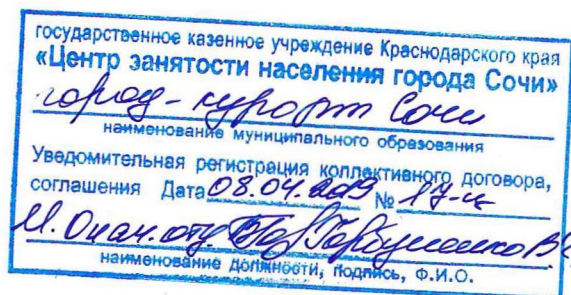 государственное казенное учреждение Краснодарского края
«Центр занятости населения города Сочи»
город-курорт Сочи
наименование муниципального образования
Уведомительная регистрация коллективного договора,
соглашения Дата 08.04.2019 № 17-к
наименование должности, подпись, Ф.И.О.